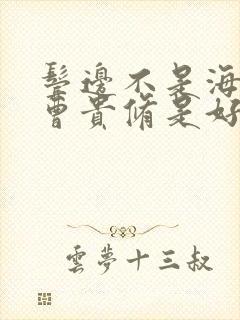 鬢邊不是海
曹貴脩是好
雲夢十三叔